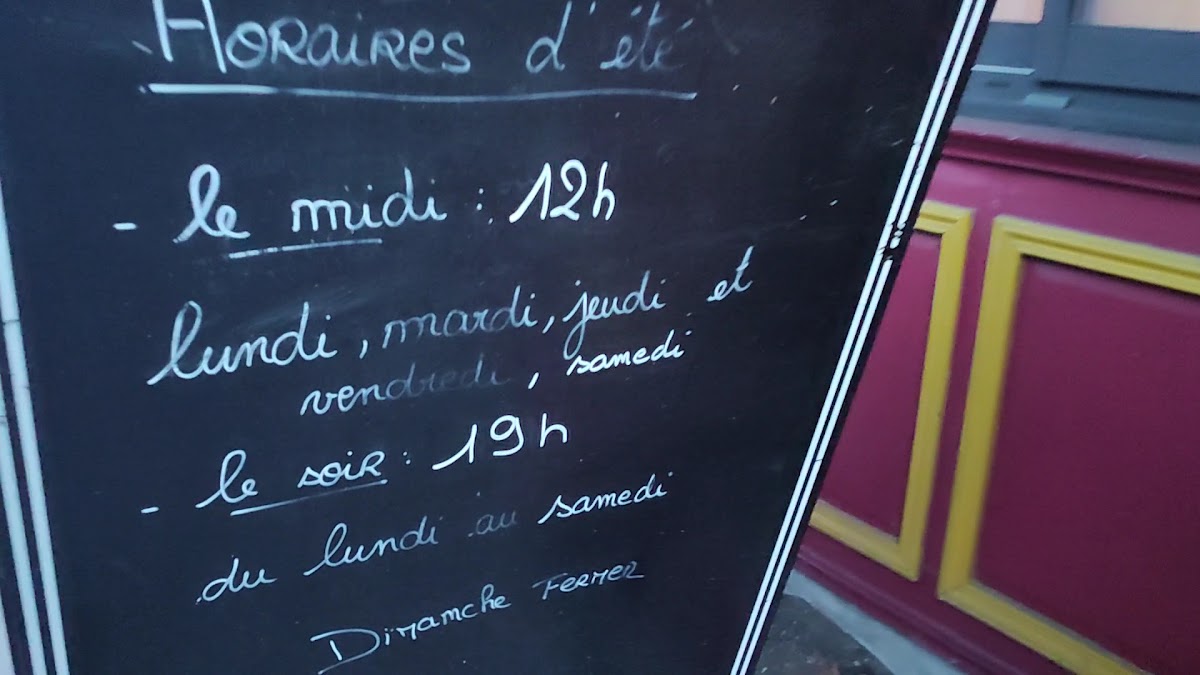 HORAIRES d'été
- le midi : 12h
lundi, mardi, jeudi et
vendredi, samedi
- le soir : 19h
du lundi au samedi
Dimanche FERMER